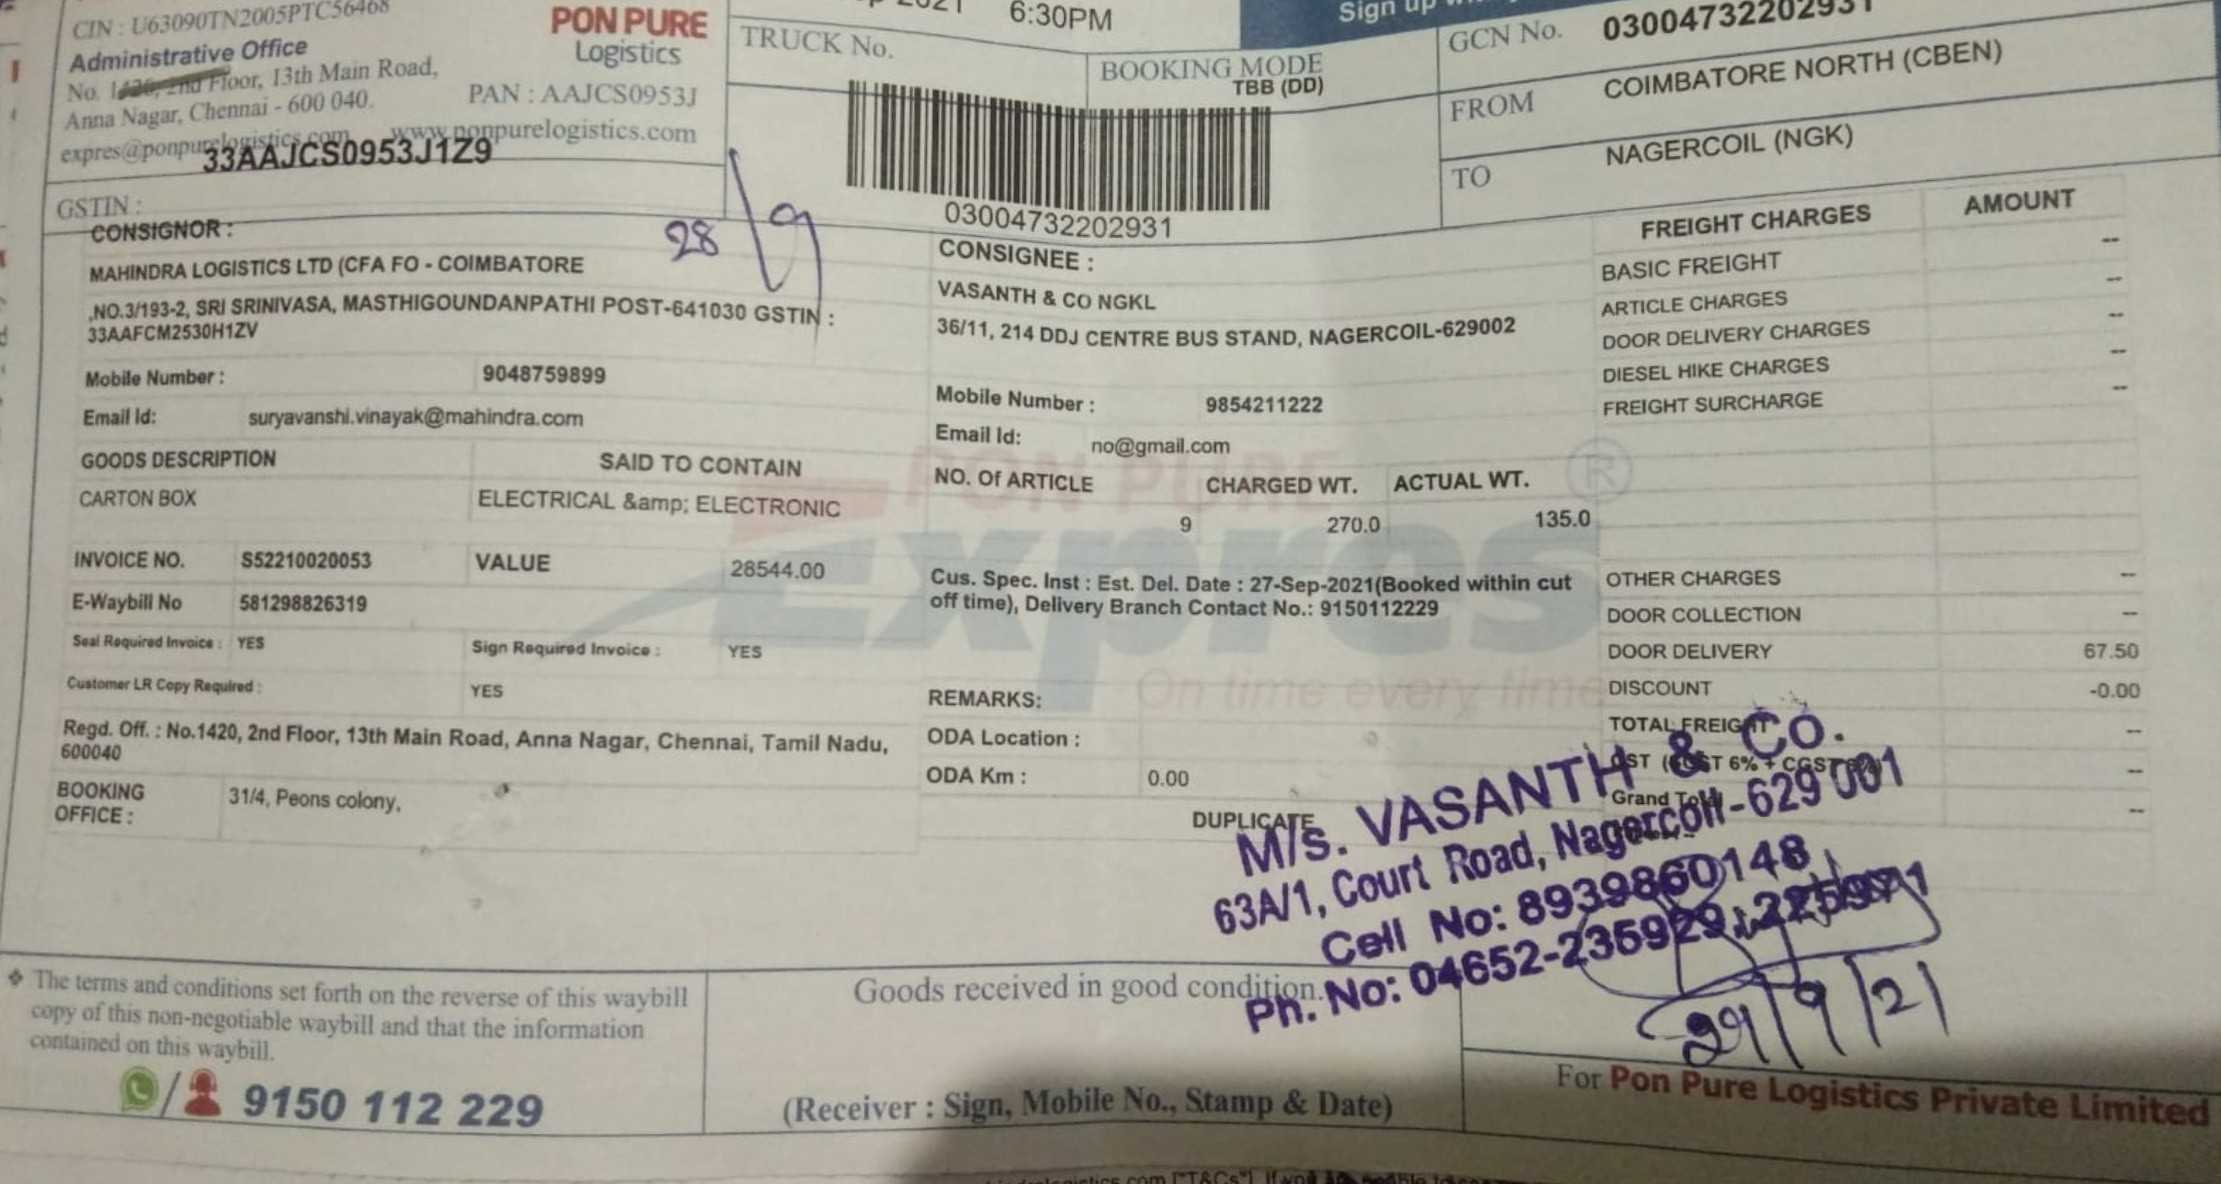 CIN : U63090TN2005PTC56468
Administrative Office
No. 1420, 2nd Floor, 13th Main Road,
Anna Nagar, Chennai - 600 040.
expres@ponpurelogistics.com www.ponpurelogistics.com
33AAJCS0953J1Z9
GSTIN :
PON PURE
Logistics
PAN : AAJCS0953J
2021 6:30PM
Sign up
TRUCK No.
BOOKING MODE
TBB (DD)
03004732202931
GCN No. 03004732202931
FROM COIMBATORE NORTH (CBEN)
TO NAGERCOIL (NGK)
CONSIGNOR :
28/9
MAHINDRA LOGISTICS LTD (CFA FO - COIMBATORE
,NO.3/193-2, SRI SRINIVASA, MASTHIGOUNDANPATHI POST-641030 GSTIN :
33AAFCM2530H1ZV
Mobile Number : 9048759899
Email Id: suryavanshi.vinayak@mahindra.com
CONSIGNEE :
VASANTH & CO NGKL
36/11, 214 DDJ CENTRE BUS STAND, NAGERCOIL-629002
Mobile Number : 9854211222
Email Id: no@gmail.com
GOODS DESCRIPTION SAID TO CONTAIN
CARTON BOX ELECTRICAL &amp; ELECTRONIC
NO. Of ARTICLE CHARGED WT. ACTUAL WT.
9 270.0 135.0
INVOICE NO. S52210020053 VALUE 28544.00
E-Waybill No 581298826319
Seal Required Invoice : YES Sign Required Invoice : YES
Customer LR Copy Required : YES
Regd. Off. : No.1420, 2nd Floor, 13th Main Road, Anna Nagar, Chennai, Tamil Nadu,
600040
BOOKING
OFFICE :
31/4, Peons colony,
Cus. Spec. Inst : Est. Del. Date : 27-Sep-2021(Booked within cut
off time), Delivery Branch Contact No.: 9150112229
REMARKS:
ODA Location :
ODA Km : 0.00
DUPLICATE
PON PURE
Expres ®
On time every time
FREIGHT CHARGES AMOUNT
BASIC FREIGHT --
ARTICLE CHARGES --
DOOR DELIVERY CHARGES --
DIESEL HIKE CHARGES --
FREIGHT SURCHARGE --
OTHER CHARGES --
DOOR COLLECTION --
DOOR DELIVERY 67.50
DISCOUNT -0.00
TOTAL FREIGHT --
GST (SGST 6% + CGST --
Grand Total --
M/s. VASANTH & CO.
63A/1, Court Road, Nagercoil-629 001
Cell No: 8939860148
Ph. No: 04652-235929, 225971
29/9/21
❖ The terms and conditions set forth on the reverse of this waybill
copy of this non-negotiable waybill and that the information
contained on this waybill.
/ 9150 112 229
Goods received in good condition.
(Receiver : Sign, Mobile No., Stamp & Date)
For Pon Pure Logistics Private Limited